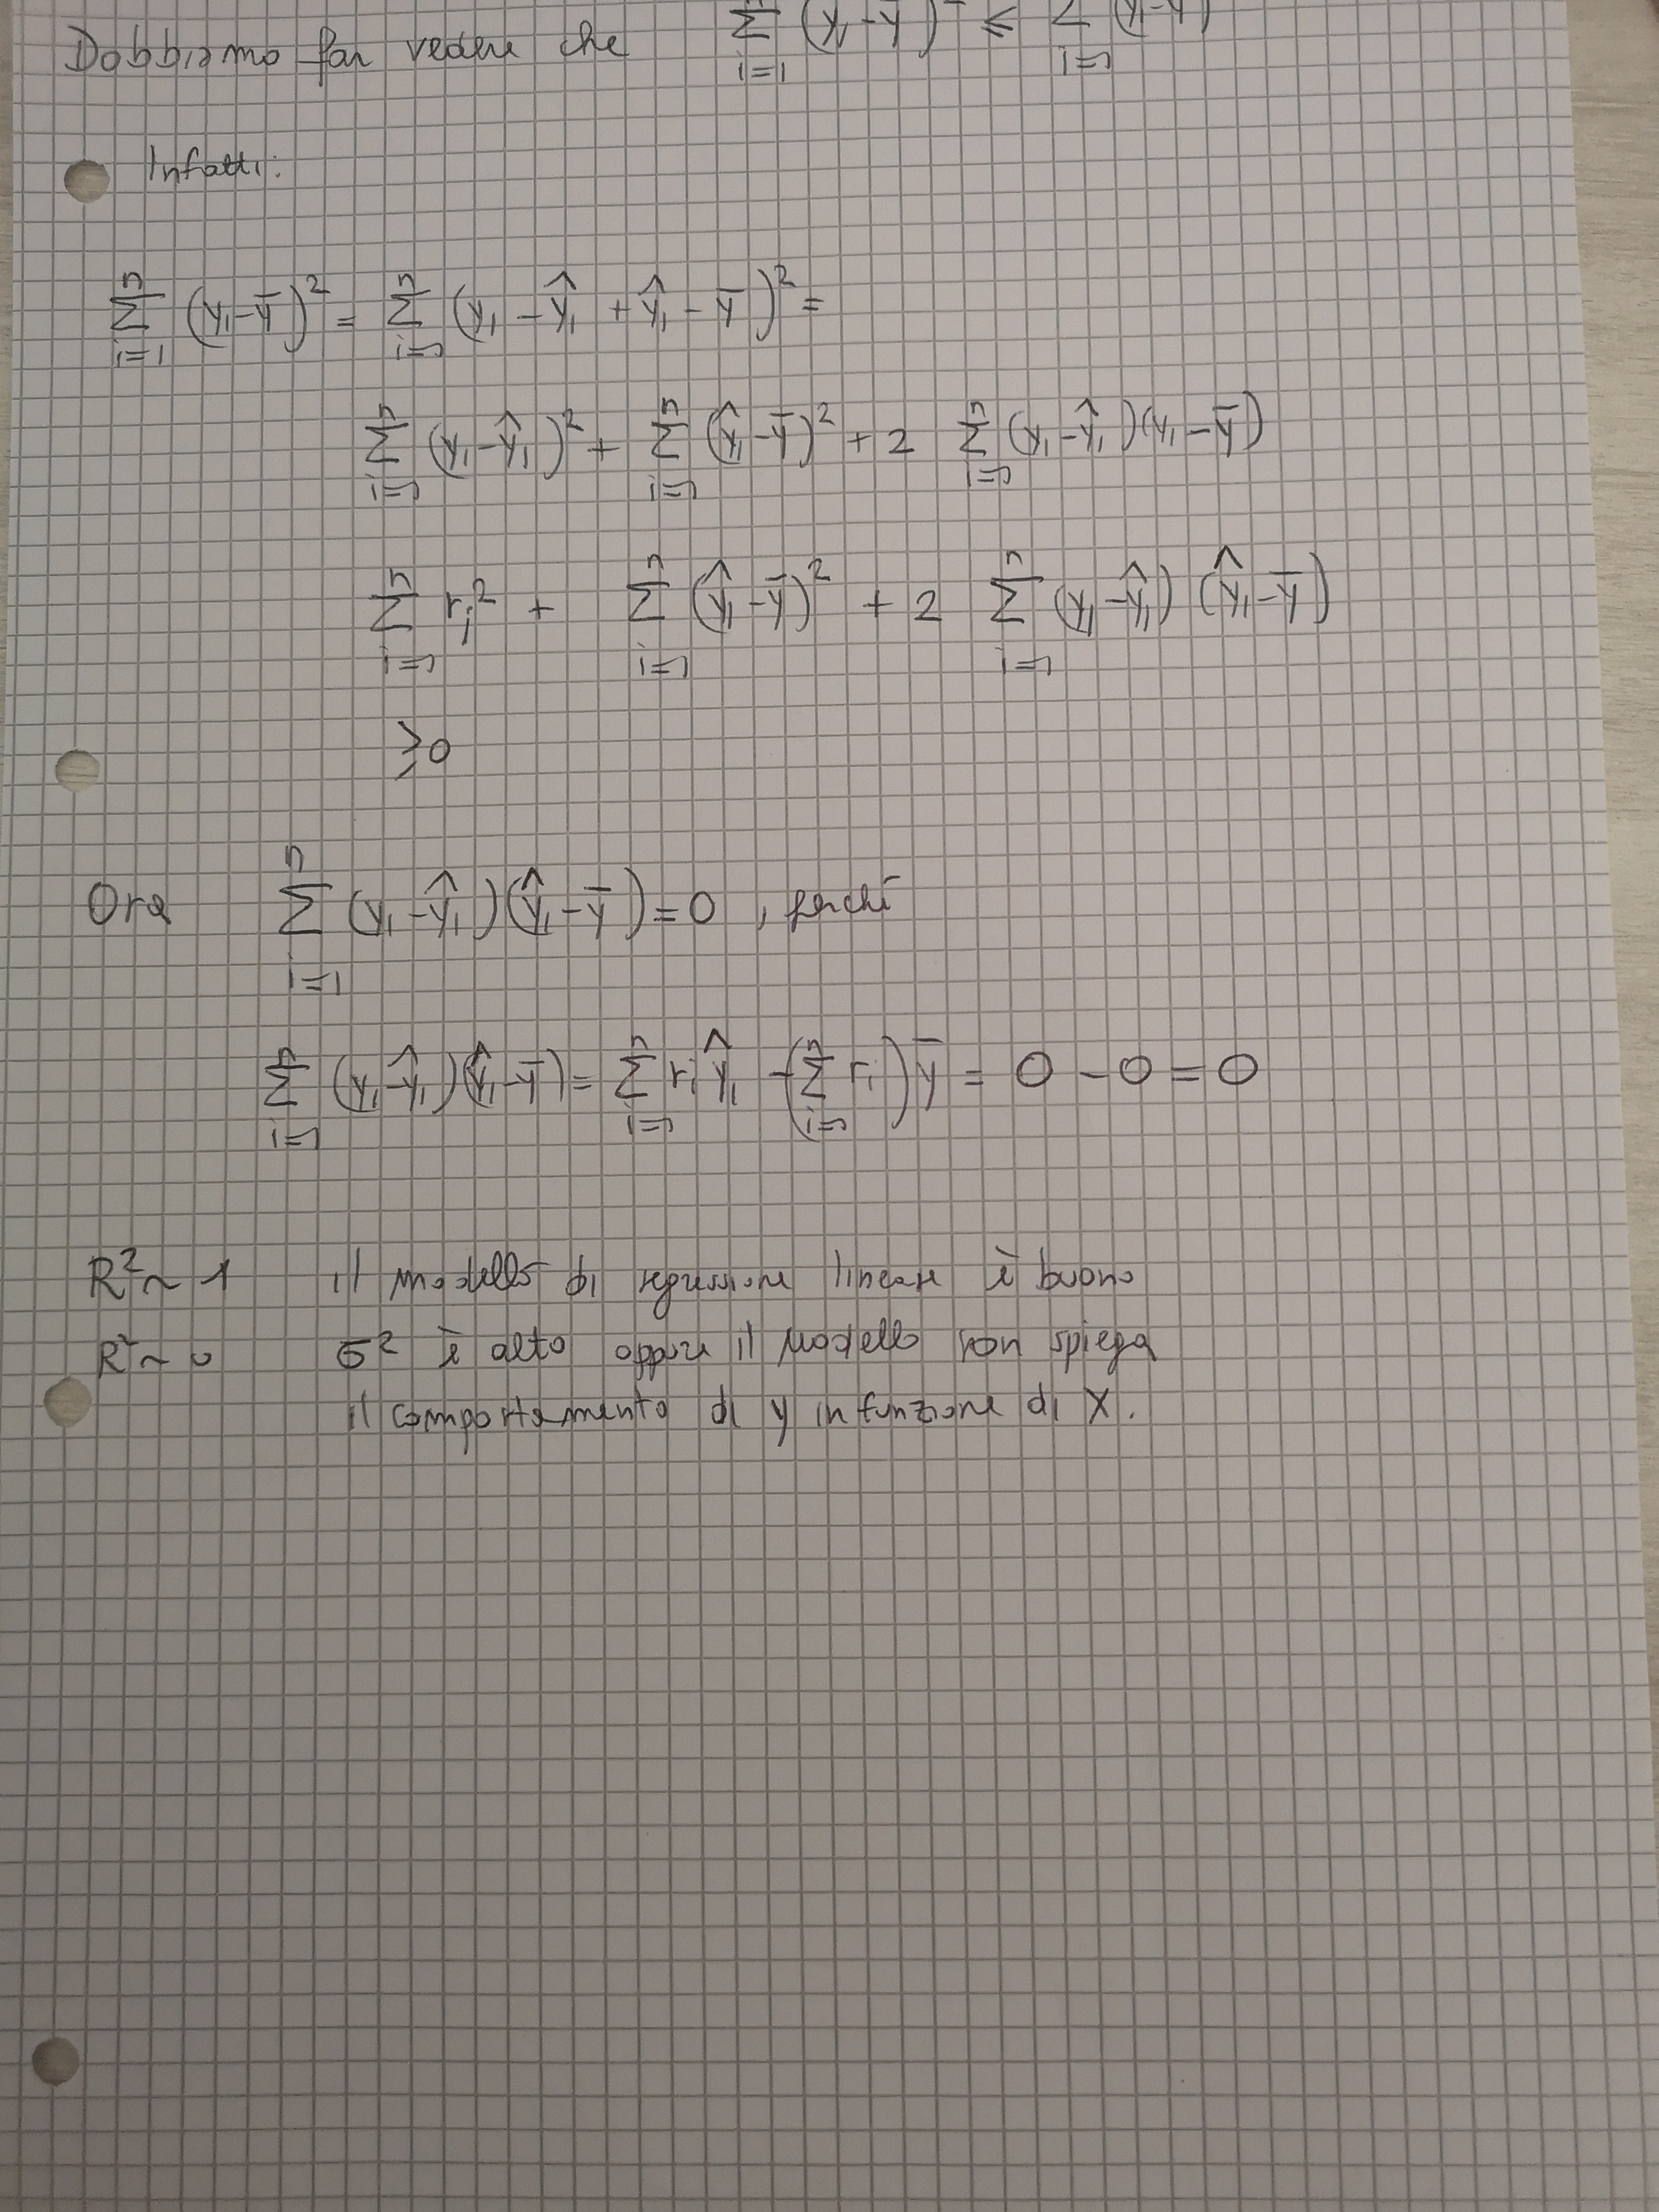 Dobbiamo far vedere che ∑_{i=1}^{n} (y_i - ȳ)² ≤ ∑_{i=1} (y_i - ȳ)
Infatti:
∑_{i=1}^{n} (y_i - ȳ)² = ∑_{i=1}^{n} (y_i - ŷ_i + ŷ_i - ȳ)² =
∑_{i=1}^{n} (y_i - ŷ_i)² + ∑_{i=1}^{n} (ŷ_i - ȳ)² + 2 ∑_{i=1}^{n} (y_i - ŷ_i)(y_i - ȳ)
∑_{i=1}^{n} r_i² + ∑_{i=1}^{n} (ŷ_i - ȳ)² + 2 ∑_{i=1}^{n} (y_i - ŷ_i) (ŷ_i - ȳ)
≥0
Ora ∑_{i=1}^{n} (y_i - ŷ_i)(ŷ_i - ȳ) = 0 , perché
∑_{i=1}^{n} (y_i - ŷ_i)(ŷ_i - ȳ) = ∑_{i=1}^{n} r_i ŷ_i - (∑_{i=1}^{n} r_i) ȳ = 0 - 0 = 0
R² ~ 1 il modello di regressione lineare è buono
R² ~ 0 σ² è alto oppure il modello non spiega
il comportamento di y in funzione di X.